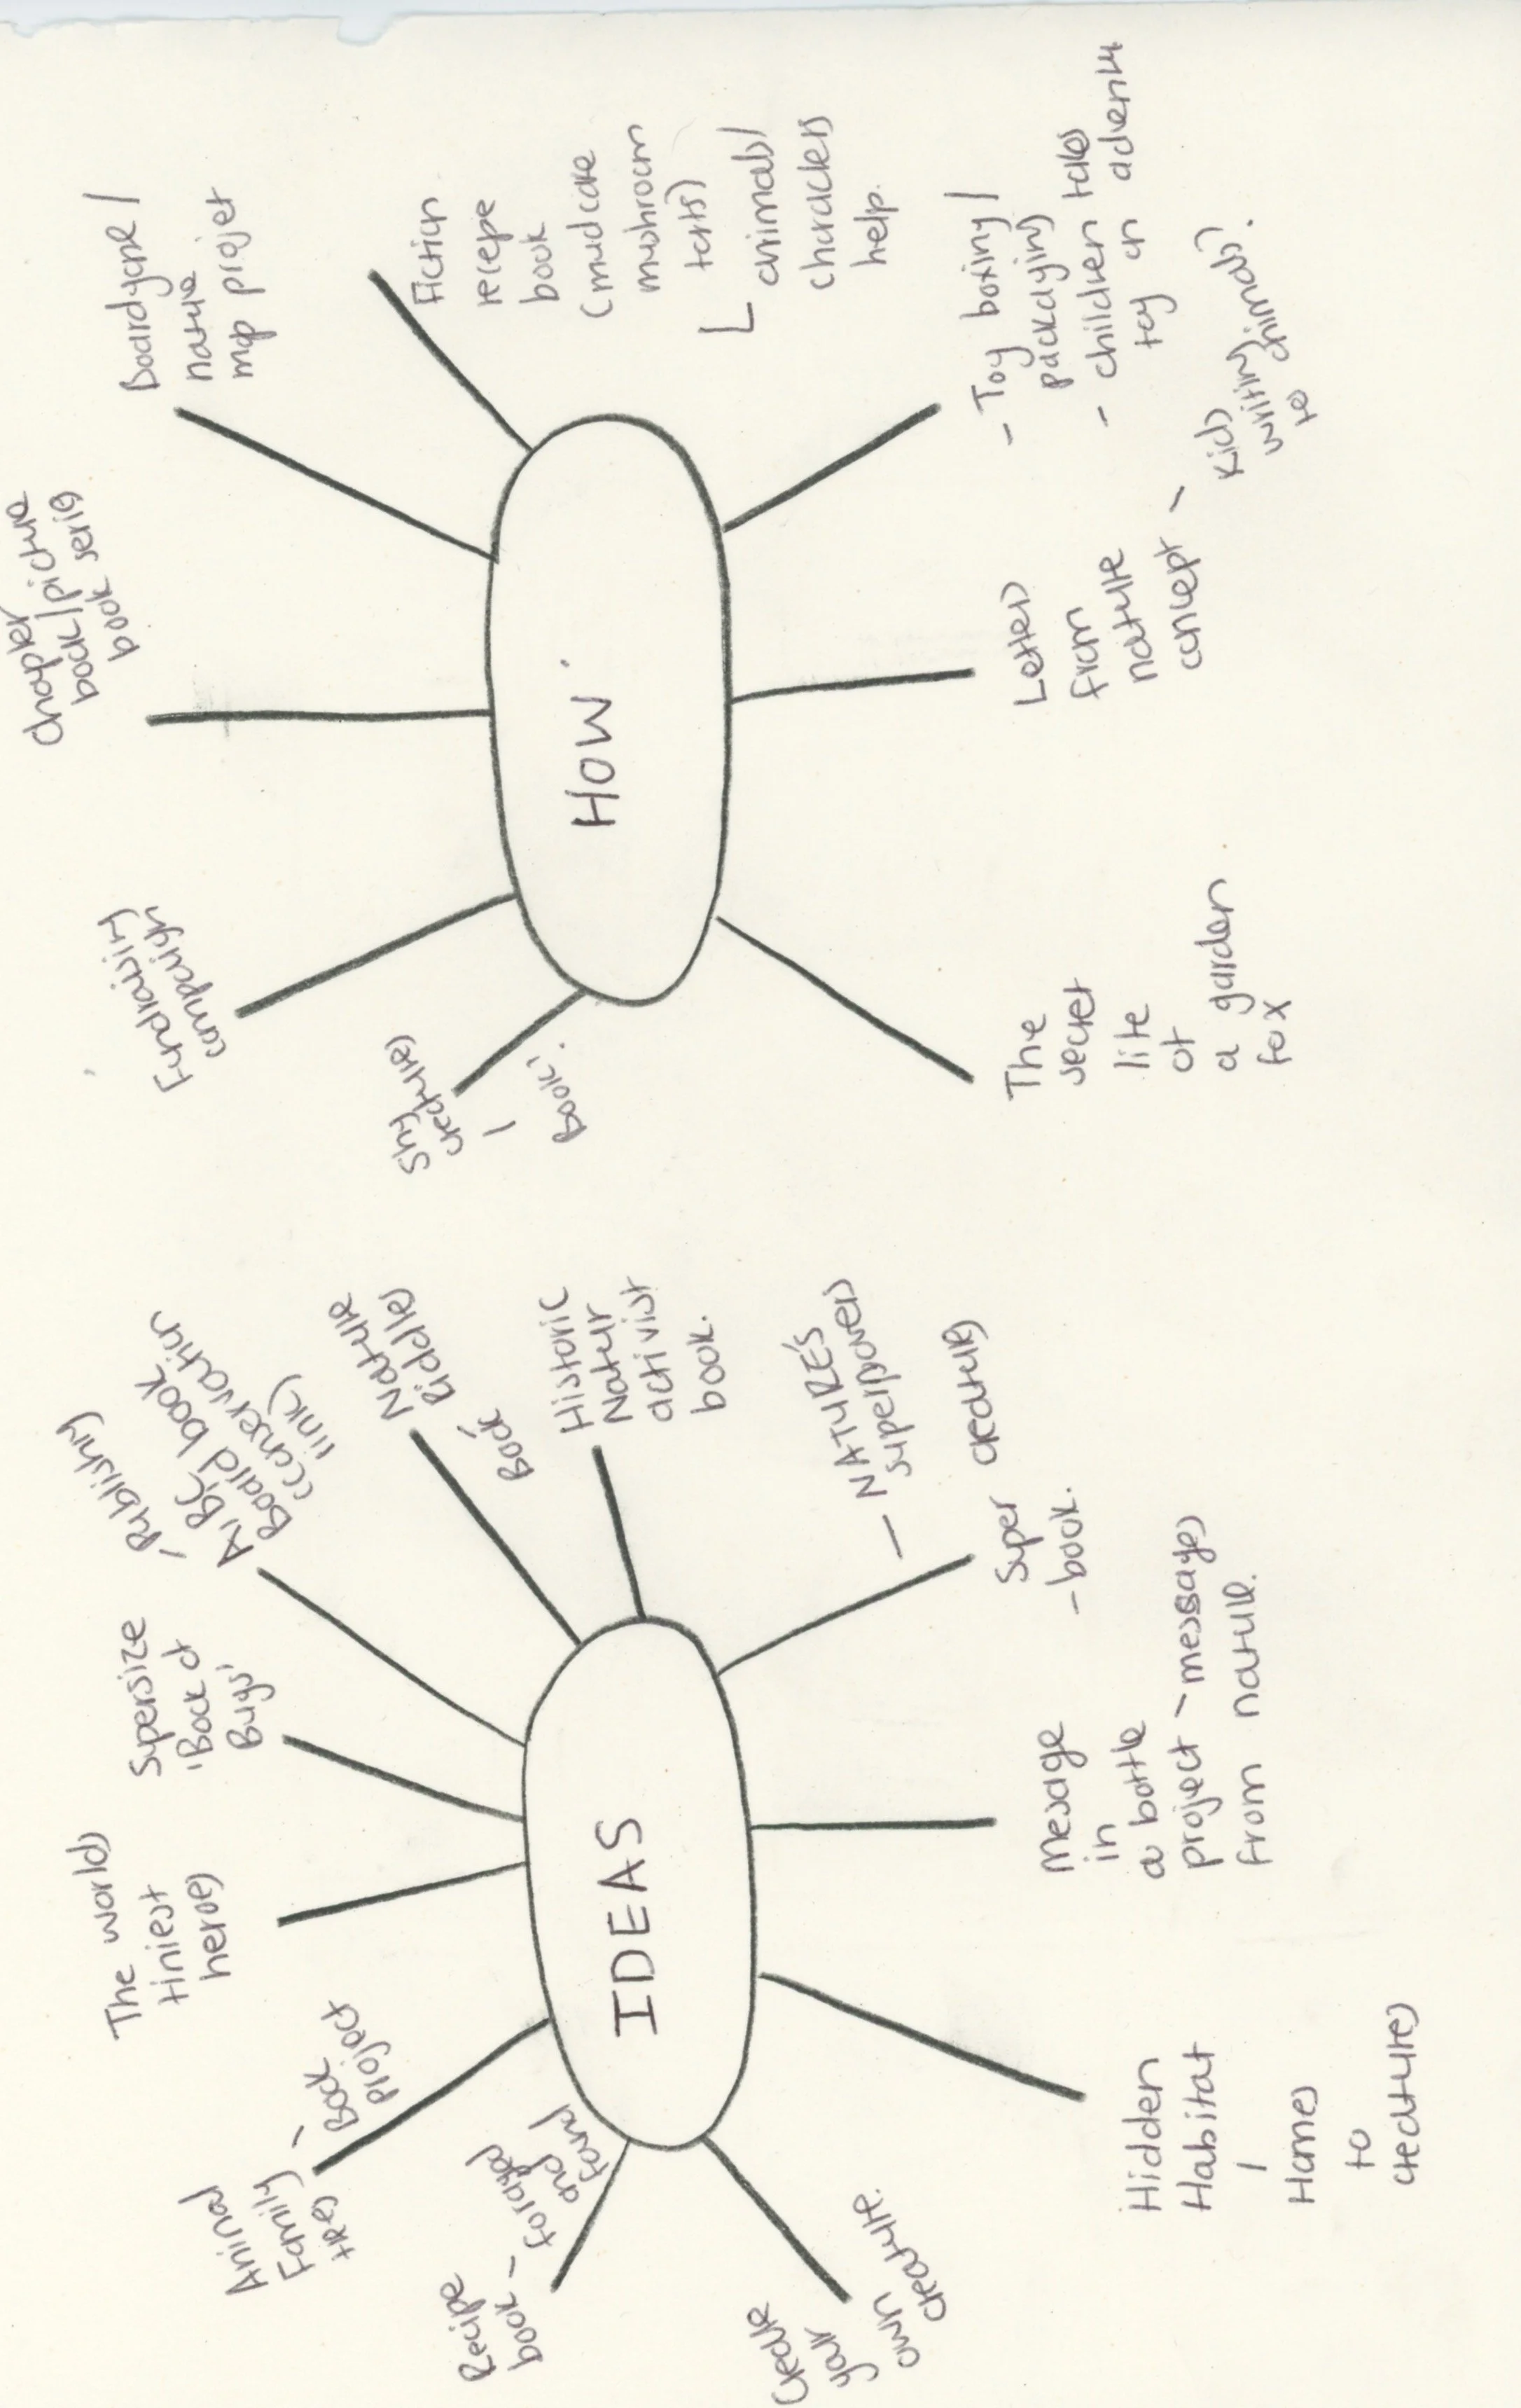 IDEAS
Recipe
book - foraged
and
found
Animal
Family - Book
trees project
The worlds
tiniest
heroes
Supersize
'Book of
Bugs'
/Publishing
A, B, C, book
Board book
(conservation
link)
Nature
Riddles
Book
Historic
Natur
activist
book.
- NATURE'S
superpowers
Super creatures
- book.
message
in
a bottle
project - messages
from nature.
Hidden
Habitat
/
Homes
to
creatures
Create
your
own
creature.
HOW.
Shy
creatures
/
Book'.
Fundraising
campaign
Chapter
book/picture
book series
Boardgame /
nature
map projet
Fiction
recepe
book
(mudcake
mushroom
tarts)
animals/
characters
help.
- Toy boxing/
packaging
- children takes
toy on adventure
Letters
from
nature
concept - Kids
writing
to animals.
The
secret
life
of
a garden
fox